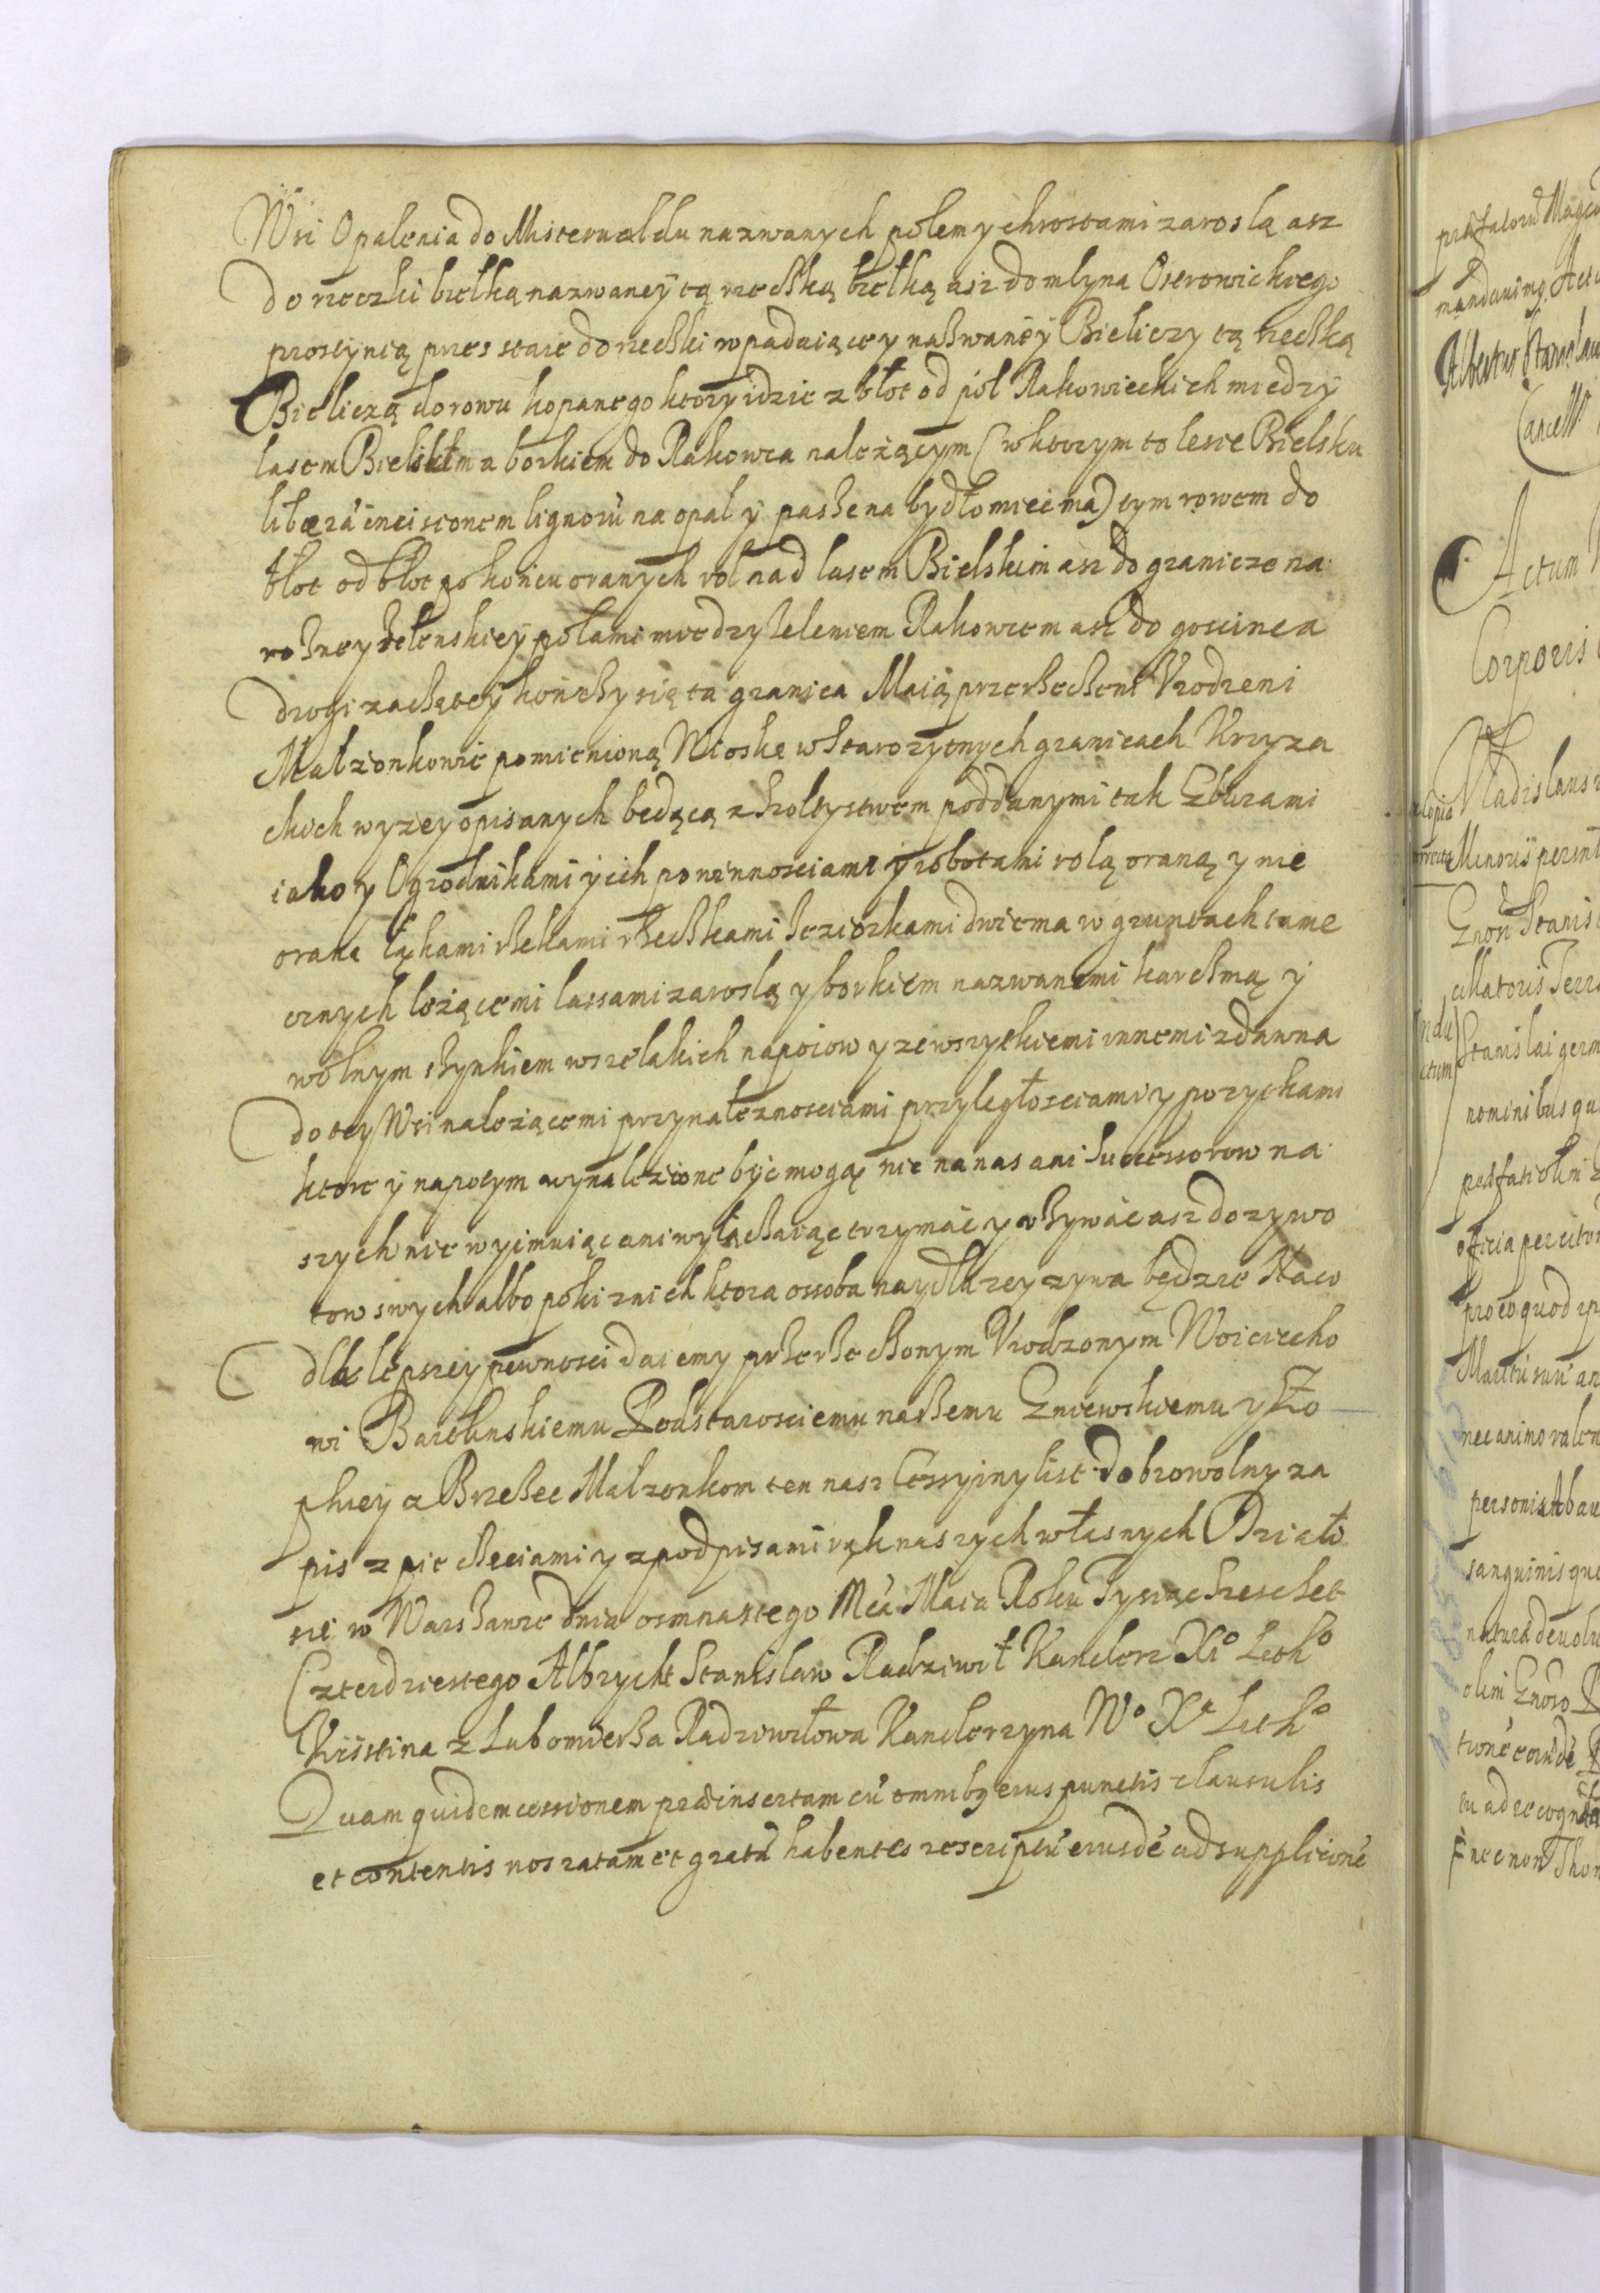 Wsi Opalenia do Misterwaldu nazwanych polem y chrostami zaroslą asz
do rzeczki biełką nazwaneÿ tą rzeczką biełką asz do mlyna Oserowickiego
prostynią przes staie do rzeczki wpadaiącey nazwaneÿ Bieliczy tą rzeczką
Bieliczą do rowu kopanego ktory idzie z błot od pól Rakowieckich miedzÿ
lasem Bielskim a borkiem do Rakowca nalezącym (w ktorym to lesie Bielsku
liberá incisionem lignorũ na opal ÿ paszę na bydło miec ma) tym rowem do
błot od błot po koncu oranych rol nad lasem Bielskim asz do granicze na
rozney Zelenskieÿ polami miedzy Zeleniem Rakowcem asz do goscinca
drogi zaczętey kończy się ta granica Maią przerzeczeni Vrodzeni
Malzonkowie pomienioną Wioskę w starozytnych granicach Krzyza
ckich wyzey opisanych będącą z szoltystwem poddanymi tak Gburami
iako y Ogrodnikami ÿ ich powinnosciami ÿ robotami rolą oraną y nie
oraną łąkami rzekami rzeczkami Jeziorkami dwiema w gruntach tame
cznych lezącemi lassami zaroslą y borkiem nazwanemi karczmą ÿ
wolnym szynkiem wszelakich napoiow y ze wszytkiemi innemi zdawna
do tey Wsi nalezącemi przynaleznosciami przyległosciami y pozytkami
ktore ÿ napotym wynalezione byc mogą nic na nas ani Successorow na
szych nic wyimuiąc ani wyłączaiąc trzymác y vzywác asz do zywo
tow swych albo poki z nich ktora ossoba naydłuzey zywa będzie Naco
dla lepszey pewnosci daiemy przerzeczonym Vrodzonym Woiciecho
wi Podstarosciemu naszemu Gniewskiemu y Zo
phiey z Malzonkom ten nasz Cessyiny list dobrowolny za
pis z pieczeciami y z podpisami rąk naszych własnych Działo
się w Warszawie dnia osmnastego Mca Maia Roku Tysiąc szesc set
Czterdziestego Albrycht Stanislaw Radziwił Kanclerz Xº Litkº
Kristina z Lubomierza Radziwiłowa Kanclerzyna Wº Xª Litkº
Quam quidem cessionem praeinsertam cũ omnibq eius punctis clausulis
et contentis nos ratam et gratũ habentes rescriptũ eiusdẽ ad supplicionẽ

Albertus Stanislaus
Cancell
Actum
Corporis
Vladislaus
Stanis
Stanislai germ
nominibus
officia
pro eo quod
nec animo
personis
sanguinis
olim